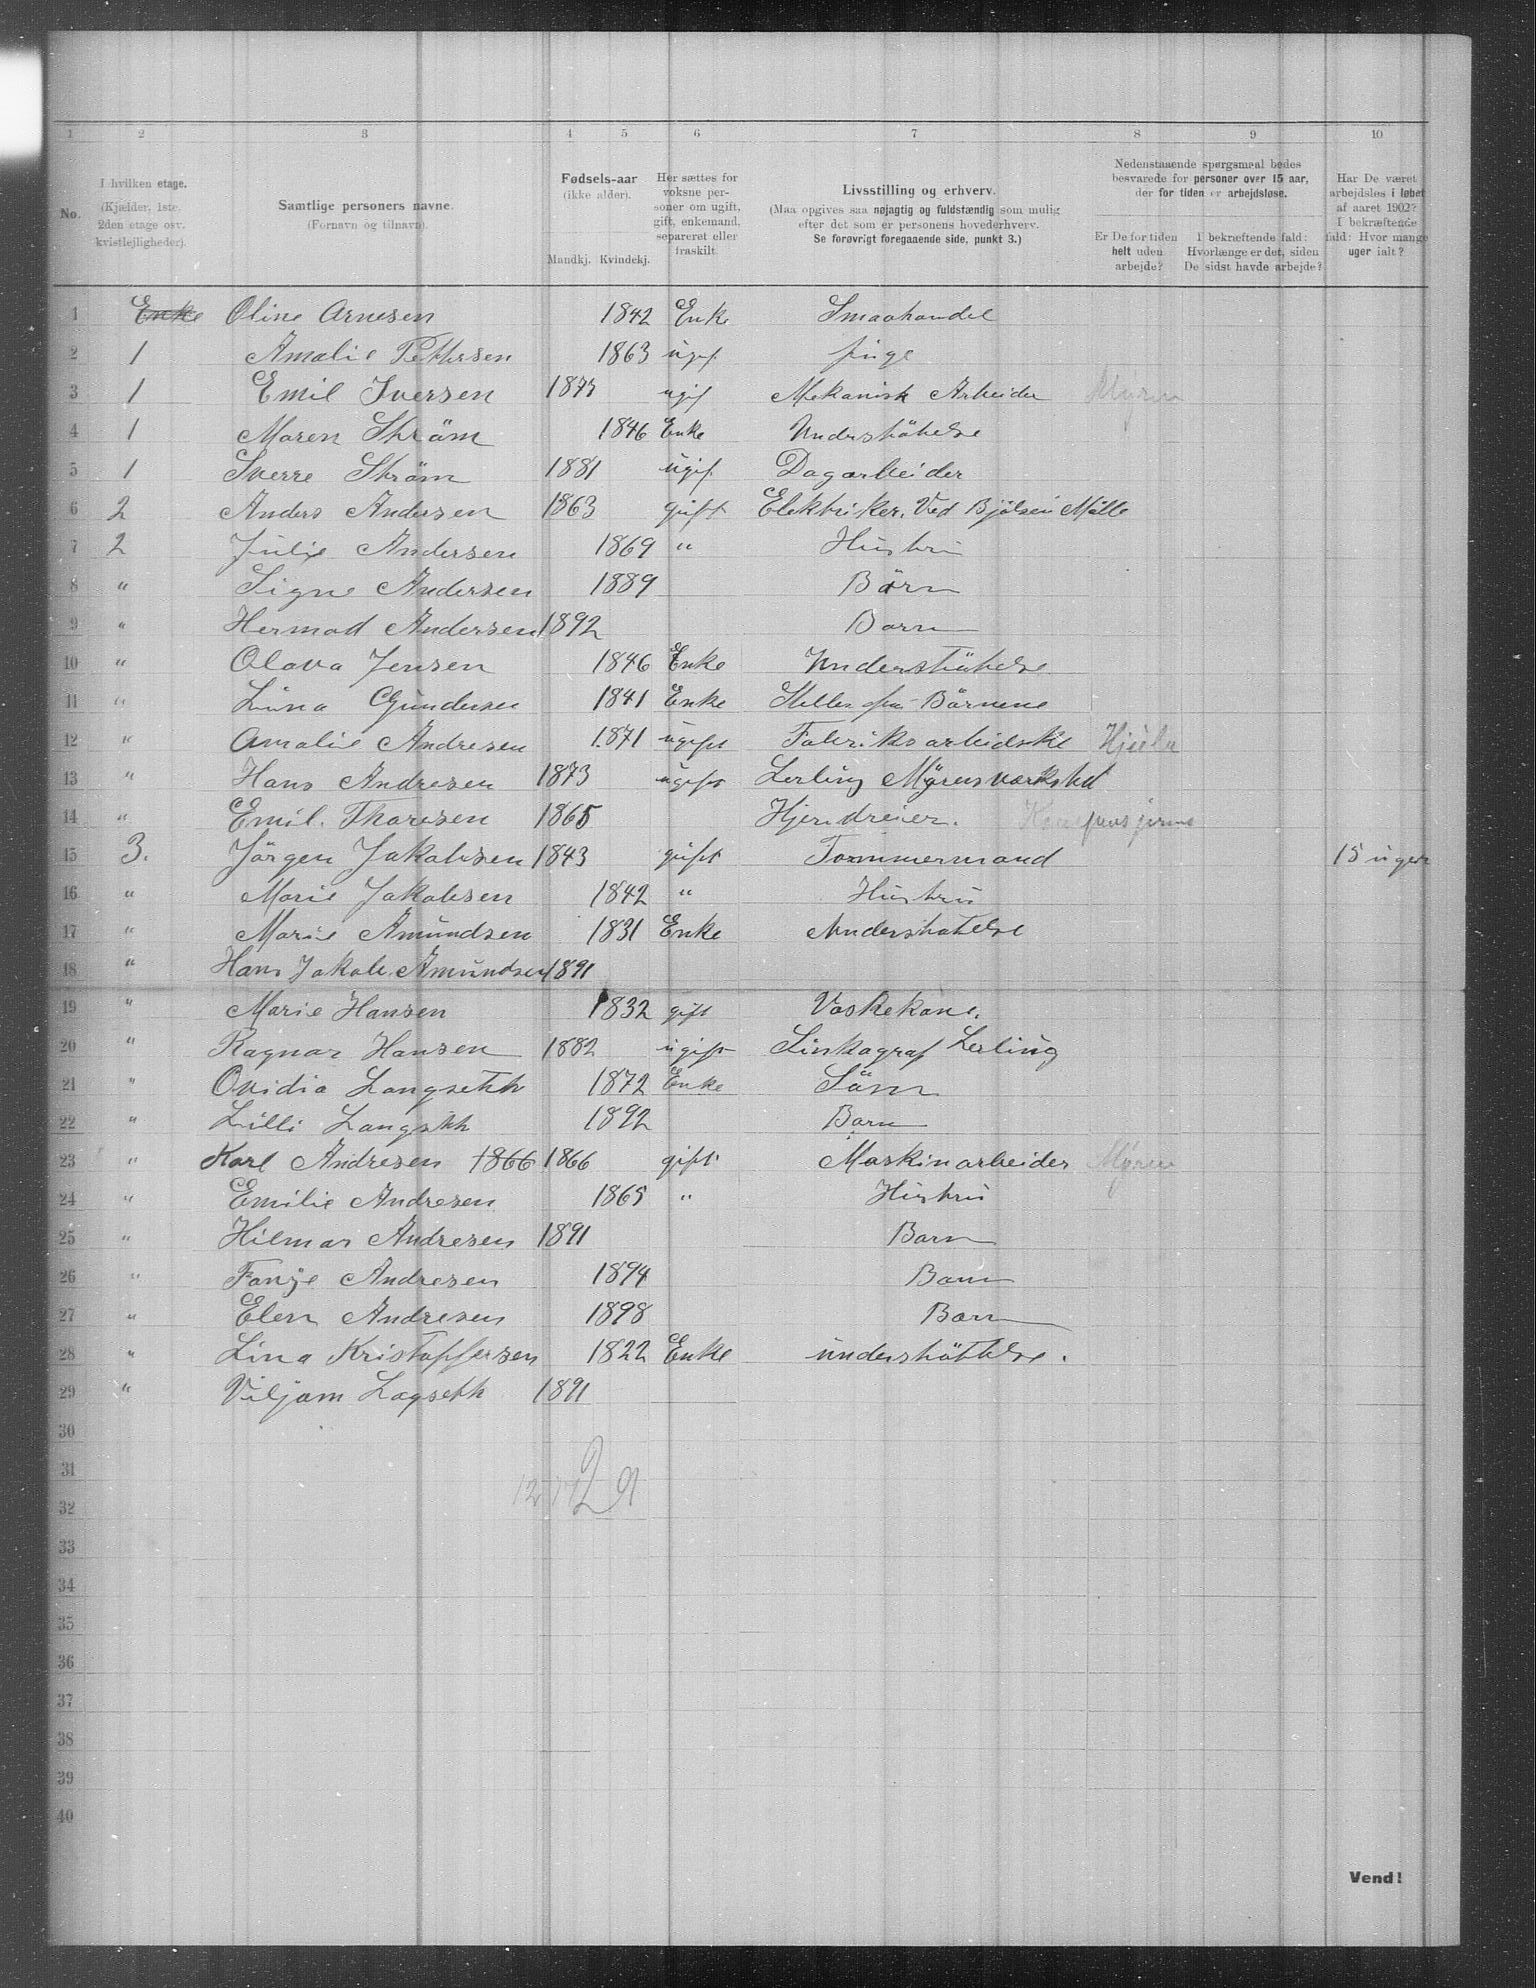 1 2 3 4 5 6 7 8 9 10
No.
I hvilken etage.
(Kjælder, 1ste,
2den etage osv.
kvistlejligheder).
Samtlige personers navne.
(Fornavn og tilnavn).
Fødsels-aar
(ikke alder).
Mandkj. Kvindekj.
Her sættes for
voksne per-
soner om ugift,
gift, enkemand,
separeret eller
fraskilt.
Livsstilling og erhverv.
(Maa opgives saa nøjagtig og fuldstændig som mulig
efter det som er personens hovederhverv.
Se forøvrigt foregaaende side, punkt 3.)
Nedenstaaende spørgsmaal bedes
besvarede for personer over 15 aar,
der for tiden er arbejdsløse.
Er De for tiden
helt uden
arbejde?
I bekræftende fald:
Hvorlænge er det, siden
De sidst havde arbejde?
Har De været
arbejdsløs i løbet
af aaret 1902?
I bekræftende
fald: Hvor mange
uger ialt?
1 Enke Oline Arnesen 1842 Enke Smaahandel
2 1 Amalie Pettersen 1863 ugif. pige
3 1 Emil Iversen 1877 ugif Mekanisk Arbeider Myren
4 1 Maren Ström 1846 Enke Understöttelse
5 1 Sverre Ström 1881 ugif. Dagarbeider
6 2 Anders Andersen 1863 gift Elektriker. Ved Bjölsen Mölle
7 2 Julie Andersen 1869 " Hustru
8 " Signe Andersen 1889 Börn
9 " Hermod Andersen 1892 Barn
10 " Olava Jensen 1846 Enke Understöttelse
11 " Lina Gundersen 1841 Enke Steller for Börnene
12 " Amalie Andresen 1871 ugift Fabriksarbeidske Hjula
13 " Hans Andresen 1873 ugift Lerling Myrens værksted
14 " Emil. Thoresen 1865 Hjendreier.
15 3. Jörgen Jakobsen 1843 gift Tommermand 15 uger
16 " Marie Jakobsen 1842 " Hustru
17 " Marie Amundsen 1831 Enke Understötelse
18 " Hans Jakob Amundsen 1891
19 " Marie Hansen 1832 gift Vaskekone.
20 " Ragnar Hansen 1882 ugift Sinkograf Lerling
21 " Ovidia Langseth 1872 Enke Söm
22 " Lilli Langsth 1892 Barn
23 " Karl Andresen 1866 1866 gift Maskinarbeider Myren
24 " Emilie Andresen 1865 " Hustru
25 " Hilmar Andresen 1891 Barn
26 " Fanje Andresen 1894 Barn
27 " Elen Andresen 1898 Barn
28 " Lina Kristoffersen 1822 Enke understöttelse.
29 " Viljam Lagseth 1891
30
31
12 17 29
32
33
34
35
36
37
38
39
40
Vend!